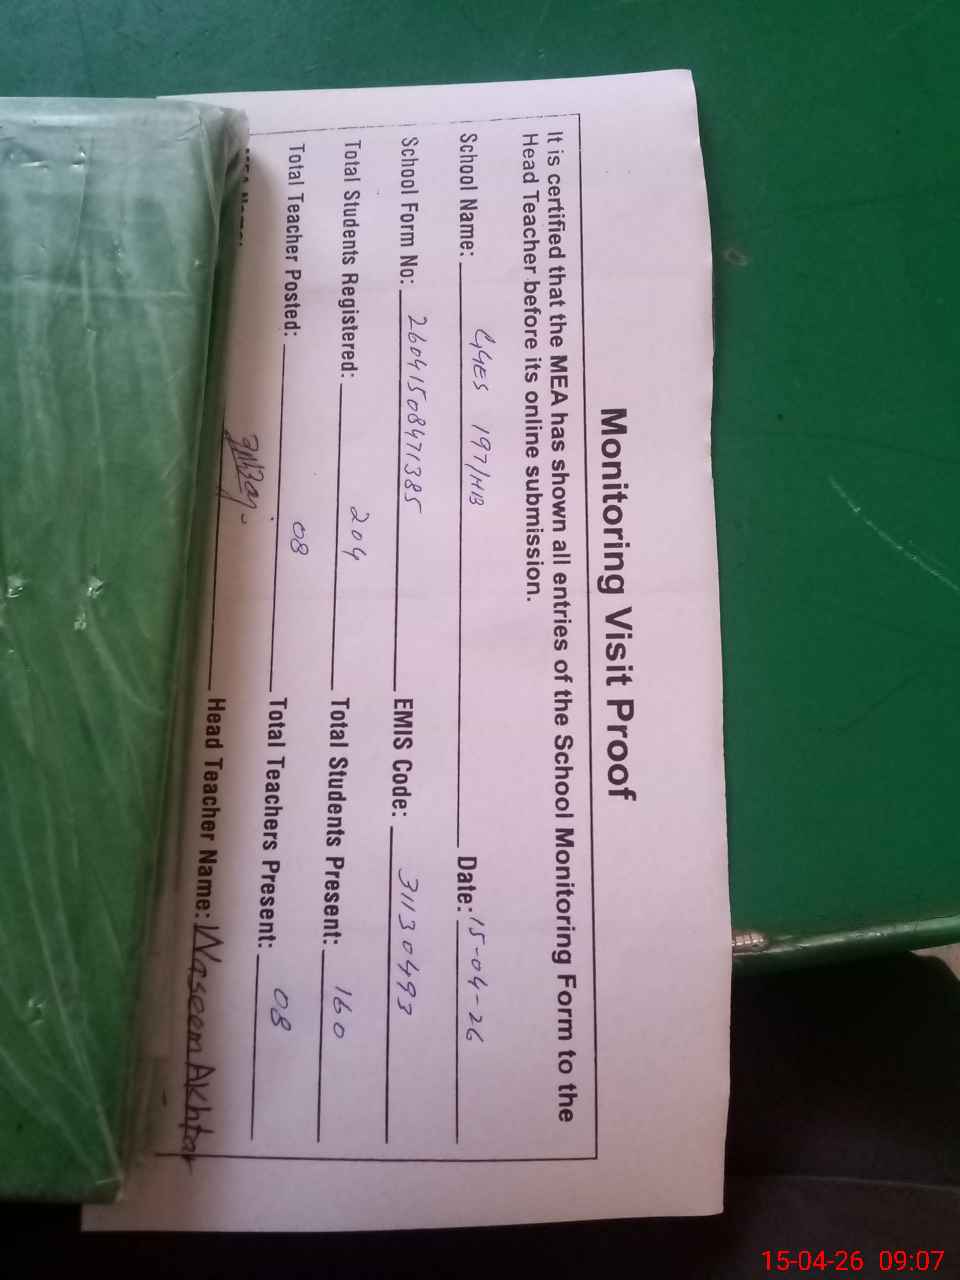 Monitoring Visit Proof
It is certified that the MEA has shown all entries of the School Monitoring Form to the
Head Teacher before its online submission.
School Name: GGES 197/HB Date: 15-04-26
School Form No: 26041508471385 EMIS Code: 31130493
Total Students Registered: 204 Total Students Present: 160
Total Teacher Posted: 08 Total Teachers Present: 08
Head Teacher Name: Waseem Akhtar
15-04-26 09:07